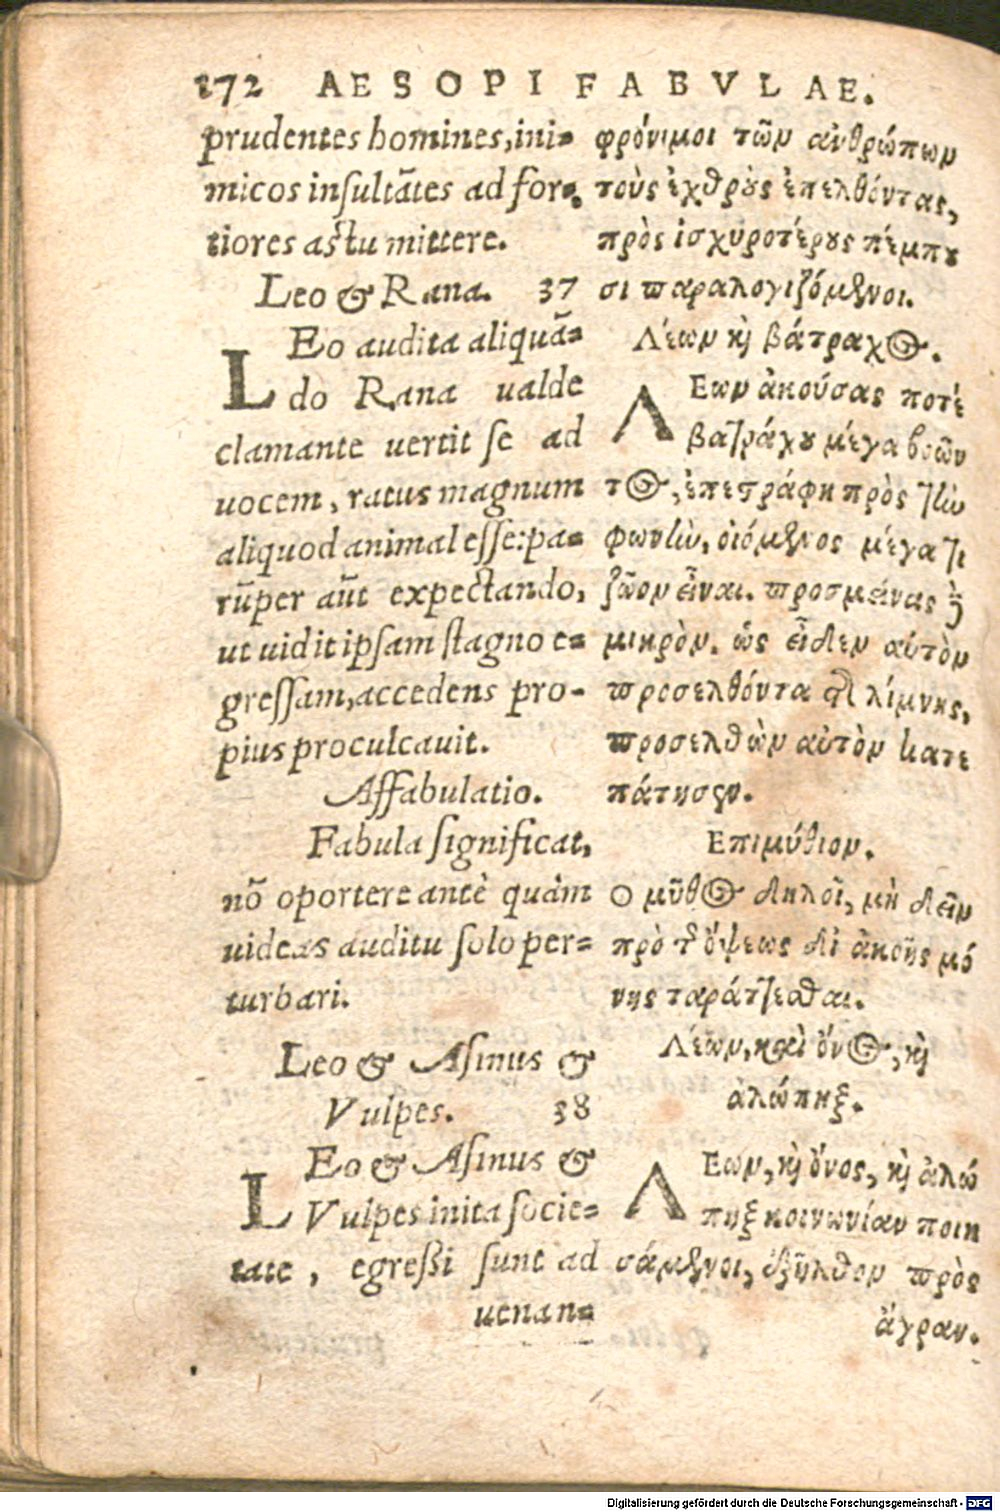 272 AESOPI FABVLAE.
prudentes homines, ini-
micos insultãtes ad for-
tiores astu mittere.
Leo & Rana. 37
LEo audita aliquã-
do Rana ualde
clamante uertit se ad
uocem, ratus magnum
aliquod animal esse: pa-
rũper aũt expectando,
ut uidit ipsam stagno e-
gressam, accedens pro-
pius proculcauit.
Affabulatio.
Fabula significat,
nõ oportere antè quàm
uideas auditu solo per-
turbari.
Leo & Asinus &
Vulpes. 38
LEo & Asinus &
Vulpes inita socie-
tate, egreßi sunt ad
uenan-
φρόνιμοι τῶν ἀνθρώπων
τοὺς ἐχθροὺς ἐπελθόντας,
πρὸς ἰσχυροτέρους πέμπου
σι παραλογιζόμενοι.
Λέων κὶ βάτραχος.
ΛΕων ἀκούσας ποτὲ
βατράχου μέγα βοῶν
τος, ἐπεστράφη πρὸς τὴν
φωνὴν, οἰόμενος μέγα τι
ζῶον εἶναι. προσμείνας ἢ
μικρὸν. ὡς εἶδεν αὐτὸν
προσελθόντα τῆς λίμνης,
προσελθὼν αὐτὸν κατε
πάτησεν.
Επιμύθιον.
Ο μῦθος δηλοῖ, μὴ δεῖν
πρὸ τ ὄψεως δι ἀκοῆς μό
νης ταράττεσθαι.
Λέων, καὶ ὄνος, κὶ
ἀλώπηξ.
ΛΕων, κὶ ὄνος, κὶ ἀλώ
πηξ κοινωνίαν ποιη
σάμενοι, ἐξῆλθον πρὸς
ἄγραν.
Digitalisierung gefördert durch die Deutsche Forschungsgemeinschaft - DFG